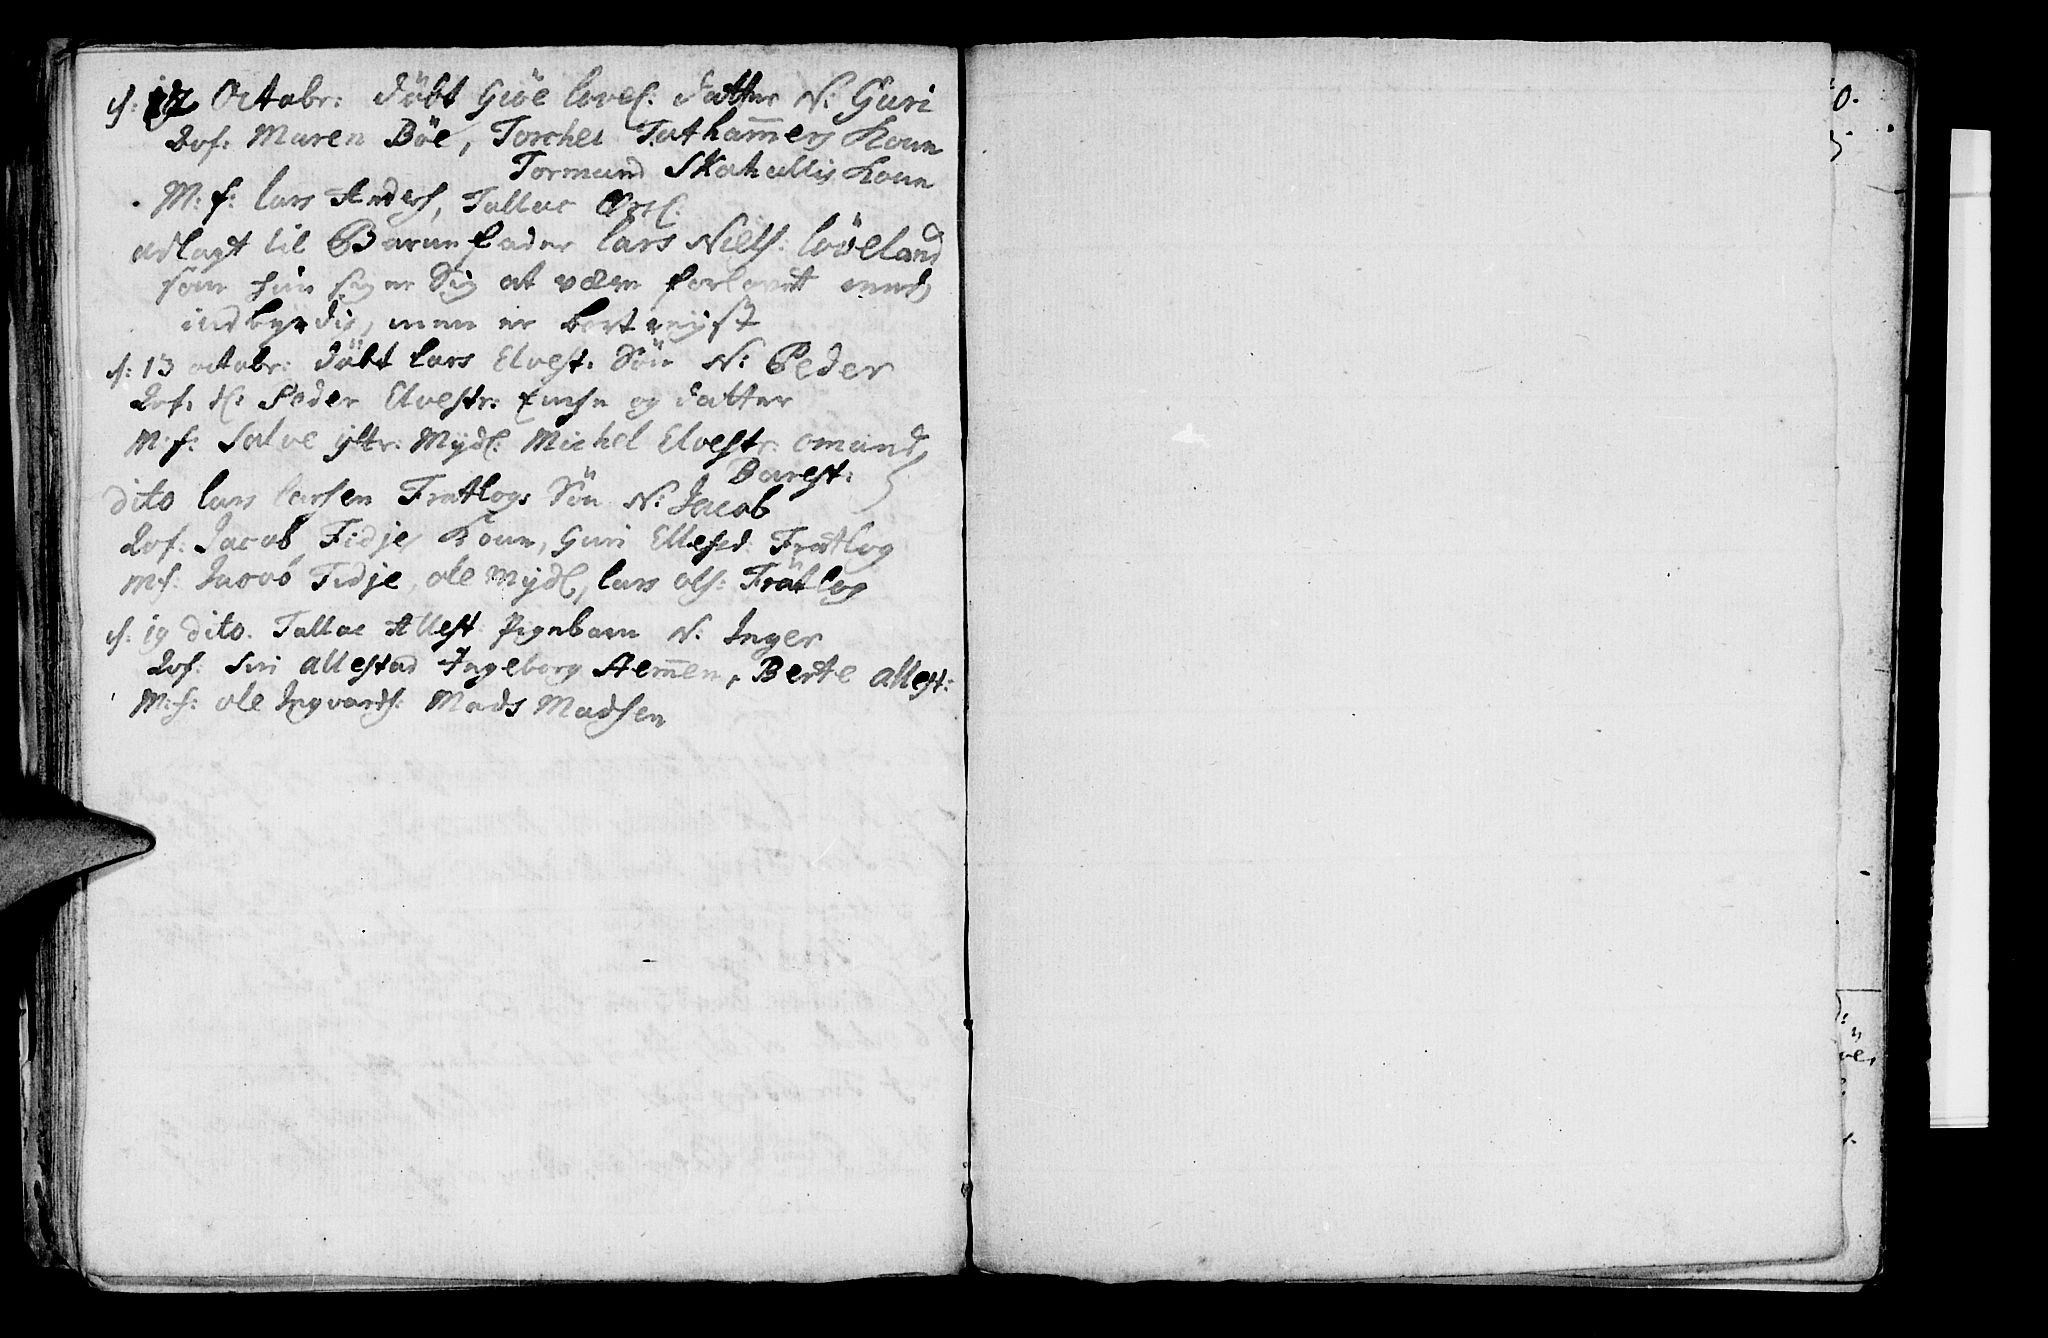 d: 12 Octobr: döbt Giöe lovs: datter N: Guri
Qvf: Maren Böe, Torchel Tuthammers Kone
Tormund Skahellis Kone
M:f: Lars Anders,  Tallac
udlagt til Barnefader Lars Niels: löeland
som hun siger sig at være forlovet med
indbyrdis, men er bortreyst
d: 13 octobr: döbt Lars Elvest: Sön N: Peder
Qvf: Sl: Peder Elvestr: Enche og datter
M:f: Salve yttr: Mydl: Michel Elvestr: omund
Barest:
dito Lars Larsen Fratlogs Sön N: Jacob
Qvf: Jacob Fidjes Kone, Guri Ellefsd: Fratlog
M:f: Jacob Fidje, ole Mydl, Lars ols: Fratlog
d: 19 dito. Tallac Allest: Pigebarn N: Inger
Qvf: Siri allestad Ingeborg Aemen, Berte allest:
M:f: ole Ingvards: Mads Madsen